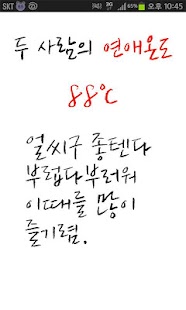 SKT 오후 10:45
두 사람의 연애온도
88℃
얼씨구 좋텐다
부럽다부러워
이때를 많이
즐기렴.